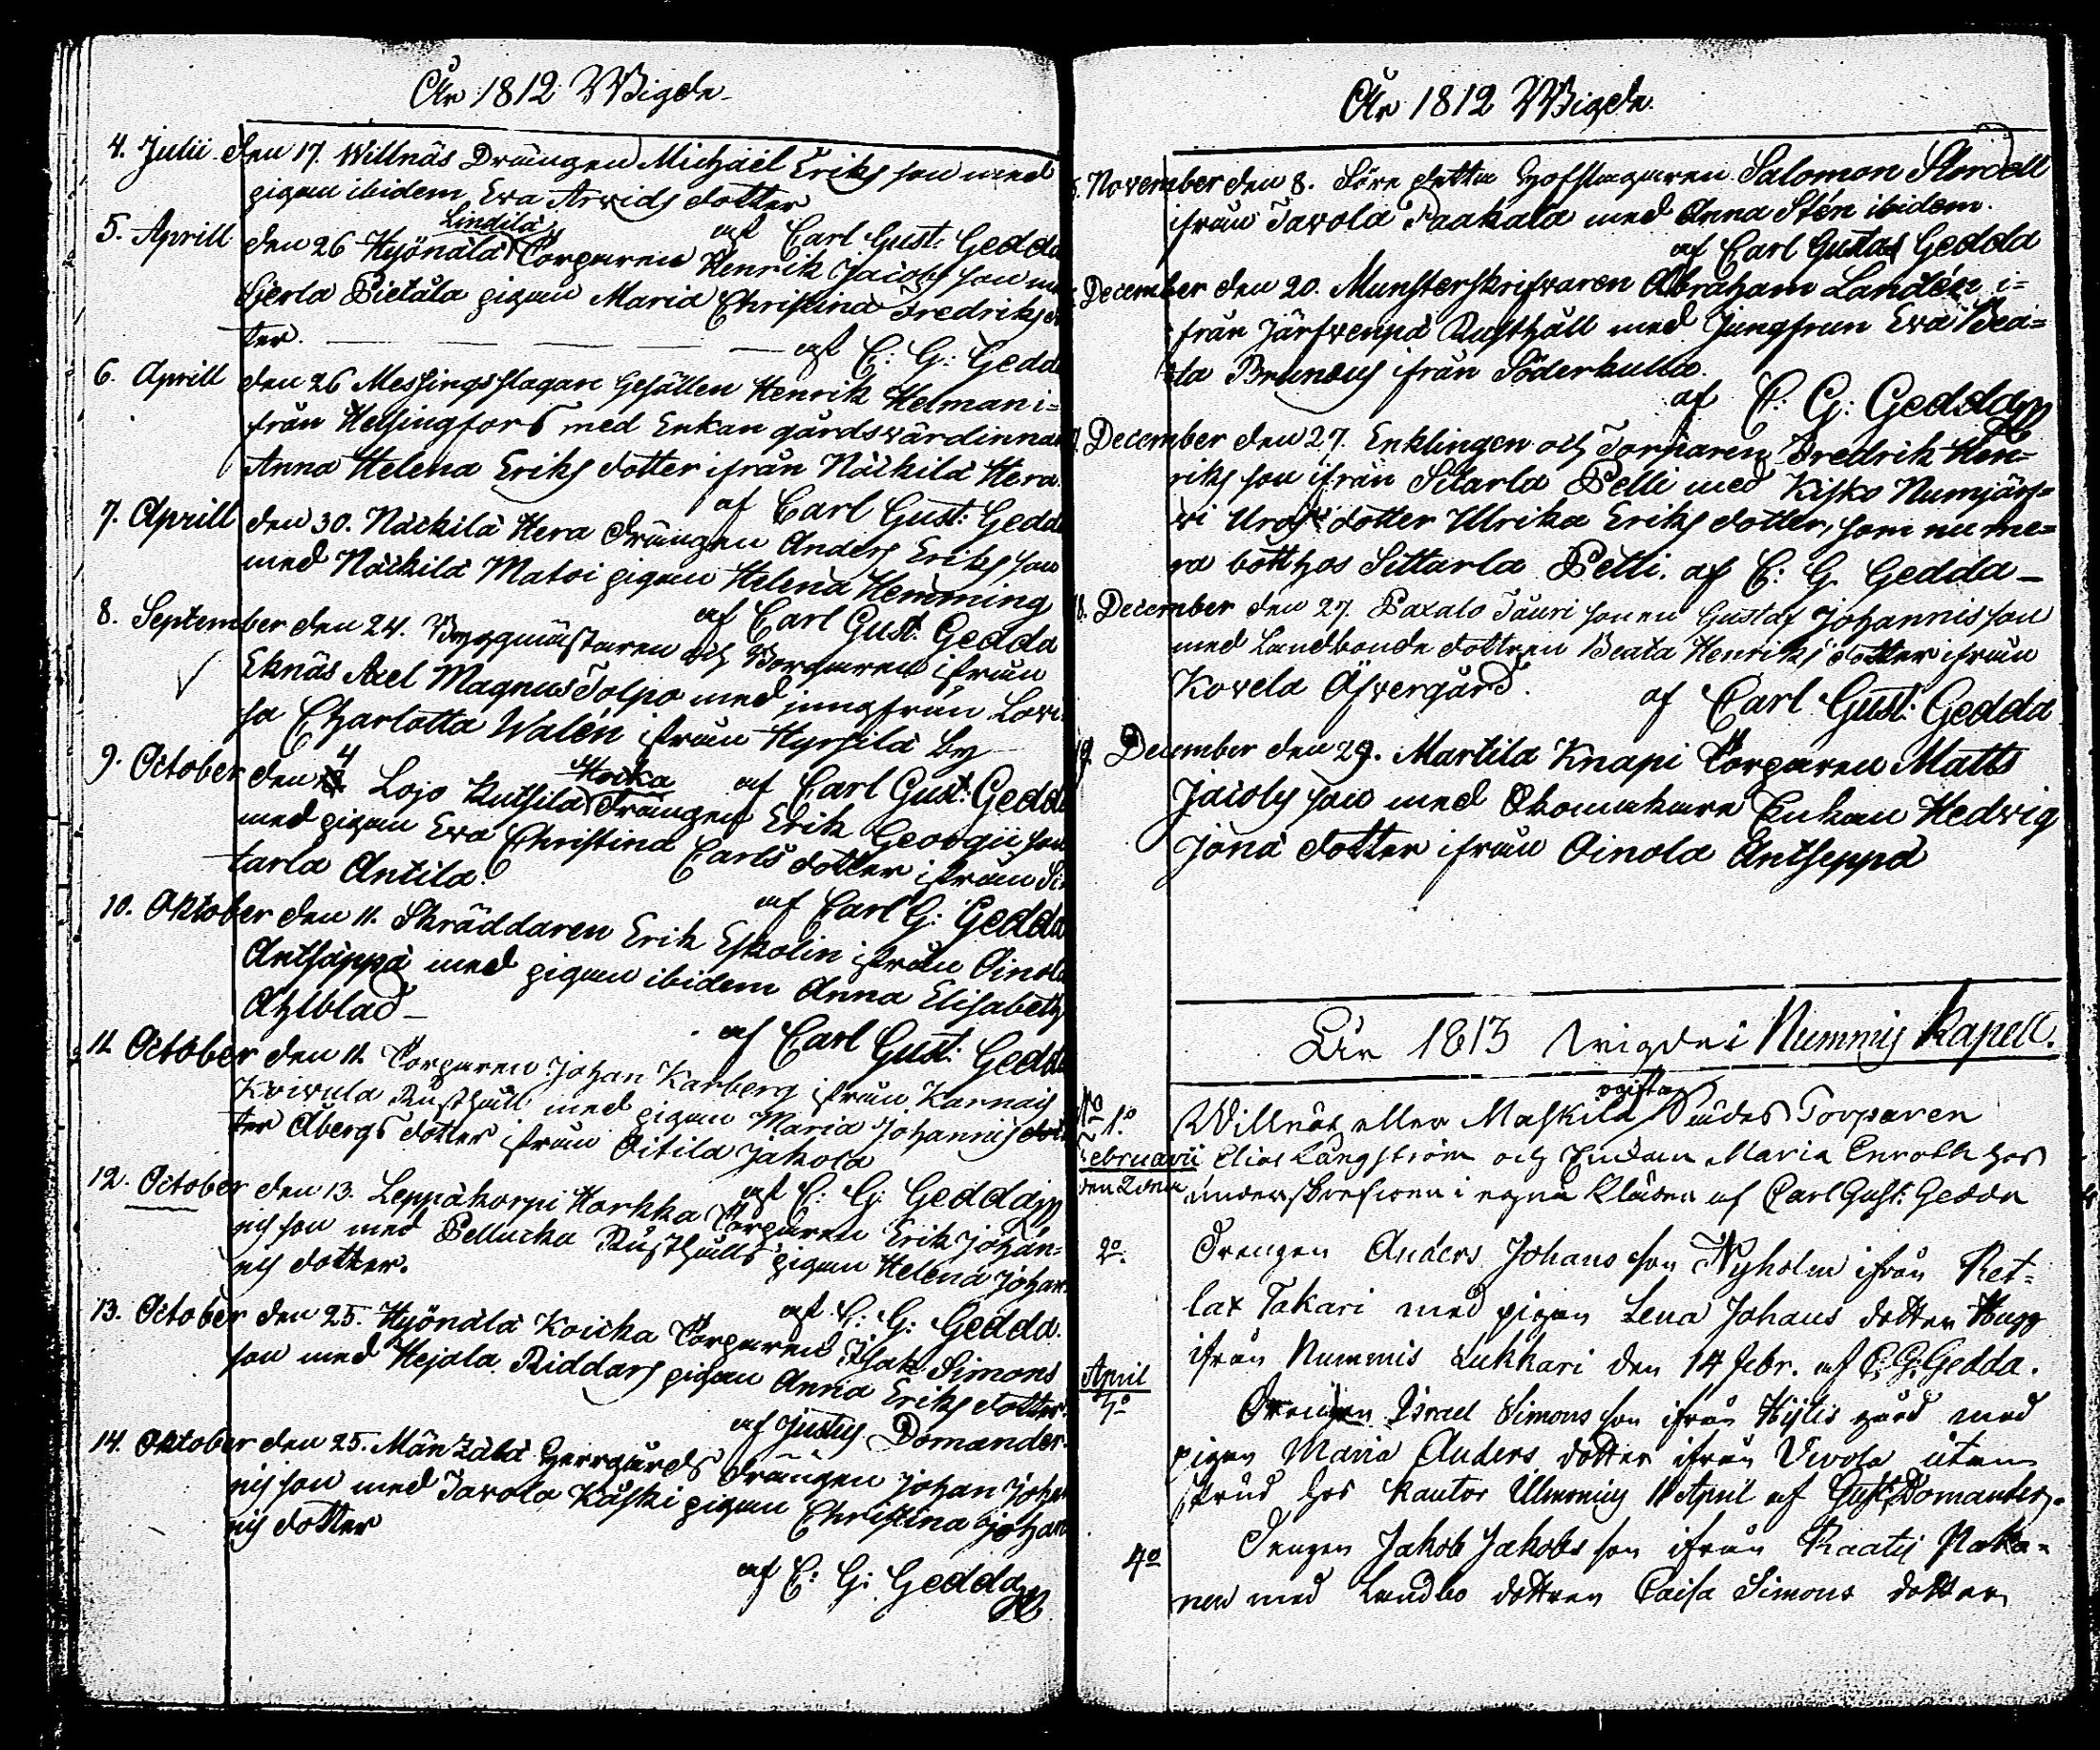 År 1812 Wigde
4. Julii den 17. Willnäs Drängen Michäel Eriks son med
pigan ibidem Ewa Arvids dotter
af Carl Gust: Gedda
5. Aprill den 26 Hyönälä Lindilä Torparen Henrik Jacobs son med
Gerla Pietälä pigan Maria Christina Fredriks dot
ter. af C: G: Gedda
6. Aprill den 26 Messingsslagare Gesällen Henrik Helman i=
från Helsingfors med Enkan gårdswärdinnan
Anna Helena Eriks dotter ifrån Näckilä Hera.
af Carl Gust: Gedda
7. Aprill den 30. Näckilä Hera drängen Anders Eriks son
med Näckilä Matoi pigan Helena Hemming
af Carl Gust. Gedda
8. September den 24. Byggmästaren och Borgaren ifrån
Eknäs Axel Magnus Tolpo med jungfrun Lovi
sa Charlotta Walén ifrån Hyrsilä by
af Carl Gust: Gedda
9. October den 4 Lojo Kutsila Hocka drängen Erik Georgii son
med pigan Ewa Christina Carls dotter ifrån Si
tarla Antila.
af Carl G: Gedda
10. Oktober den 11. Skräddaren Erik Eskolin ifrån Oinola
Antsäppä med pigan ibidem Anna Elisabeth
Ahlblad
af Carl Gust: Gedda
11 October den 11. Torparen Johan Karberg ifrån Karnais
Koivula Rusthåll med pigan Maria Johannis dot
ter Åbergs dotter ifrån Oitila Jakola
af C: G: Gedda
12. October den 13. Leppäkorpi Horkka Torparen Erik Johan=
nis son med Pellucka Rusthålls pigan Helena Johan
nis dotter.
af C: G: Gedda.
13. October den 25. Hyönälä Koucka Torparen Isak Simons
son med Hejala Riddars pigan Anna Eriks dotter.
af Justus Domander.
14. Oktober den 25. Mänzälä Herrgårds drängen Johan Johan
nis son med Tavola Käski pigan Christina Johan
nis dotter
af C: G: Gedda
År 1812 Wigde.
November den 8. Före detta Hofslagaren Salomon
ifrån Tavola Paakala med Anna Stén ibidem.
af Carl Gustaf Gedda
December den 20. Munsterskrifvaren Abraham Landén i=
från Järfvenpä Rusthåll med Jungfrun Ewa Bea=
ta Brunous ifrån Söderkulla.
af C: G: Gedda
December den 27. Enklingen och Torparen Fredrik Hen=
riks son ifrån Sitarla Pelli med Kisko Numjärf=
vi dotter Ulrika Eriks dotter, som nu me=
ra bott hos Sittarla Pelli. af C: G. Gedda
18. December den 27. Paxalo Jauri sonen Gustaf Johannis son
med Landbonde dottren Beata Henriks dotter ifrån
Kovela Öfvergård. af Carl Gust: Gedda
19. December den 29. Martila Knapi Torparen Matts
Jacobs son med Skomakare Enkan Hedvig
Jona dotter ifrån Oinola Antseppä
År 1813 wigde i Nummis Kapell.
No 1.o Willnäs eller Maskila Torparen
Februarii Elias Långström och Enkan Maria Enroth hos
den 2dra underskrefwen i egna kläder af Carl Gust: Gedda
2o Drengen Anders Johans son Nyholm ifrån Ret=
lax Takari med pigan Lena Johans dotter Hugg
ifrån Nummis Lukkari den 14 febr. af C. G. Gedda.
April
3o Drengen Israel Simons son ifrån Hijlis gård med
pigan Maria Anders dotter ifrån Vivola utan
skrud hos Kantor 11 April af Gust. Domander.
4o Drengen Jakob Jakobs son ifrån Raatis Paka=
nen med Landbo dottren Caisa Simons dotter